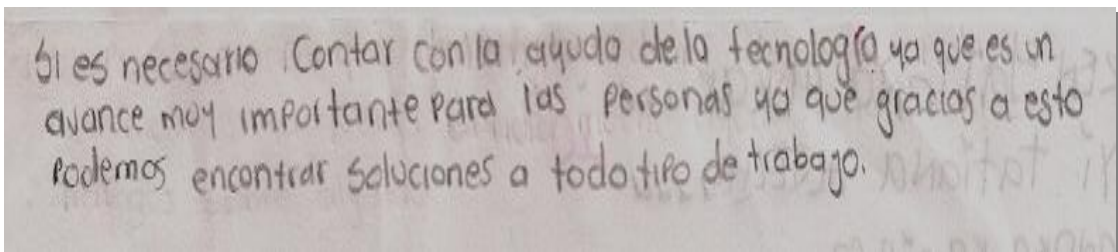 Si es necesario Contar con la ayuda de la tecnología ya que es un
avance muy importante para las personas ya que gracias a esto
podemos encontrar soluciones a todo tipo de trabajo.